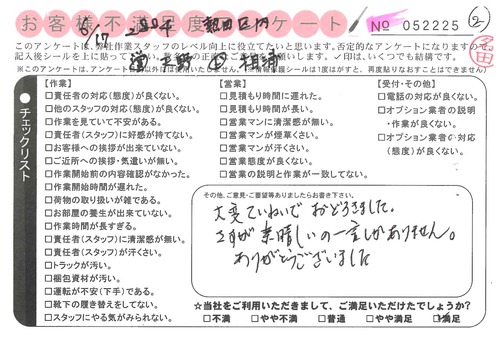 お客様不満足度アンケート
No 052225 ②
8/17 熱田区内
このアンケートは、弊社作業スタッフのレベル向上に役立てたいと思います。否定的なアンケートになりますので、
記入後シールを上に貼って
印は、いくつでも結構です。
※このアンケートは、
(情報保護シールは1度はがすと、再度貼りなおすことはできません)
チェックリスト
【作業】
□責任者の対応(態度)が良くない。
□他のスタッフの対応(態度)が良くない。
□作業を見ていて不安がある。
□責任者(スタッフ)に好感が持てない。
□お客様への挨拶が出来ていない。
□ご近所への挨拶・気遣いが無い。
□作業開始前の内容確認がなかった。
□作業開始時間が遅れた。
□荷物の取り扱いが雑である。
□お部屋の養生が出来ていない。
□作業時間が長すぎる。
□責任者(スタッフ)に清潔感が無い。
□責任者(スタッフ)が汗くさい。
□トラックが汚い。
□梱包資材が汚い。
□運転が不安(下手)である。
□靴下の履き替えをしてない。
□スタッフにやる気がみられない。
【営業】
□見積もり時間に遅れた。
□見積もり時間が長い。
□営業マンに清潔感が無い。
□営業マンが煙草くさい。
□営業マンが汗くさい。
□営業態度が良くない。
□営業の説明と作業が一致してない。
【受付・その他】
□電話の対応が良くない。
□オプション業者の説明・作業が良くない。
□オプション業者の対応(態度)が良くない。
その他、ご意見・ご要望等ありましたらお書き下さい。
大変ていねいで おどろきました。
さすが 素晴しいの一言しかありません。
ありがとうございました
☆当社をご利用いただきまして、ご満足いただけたでしょうか?
□不満 □やや不満 □普通 □やや満足 □満足